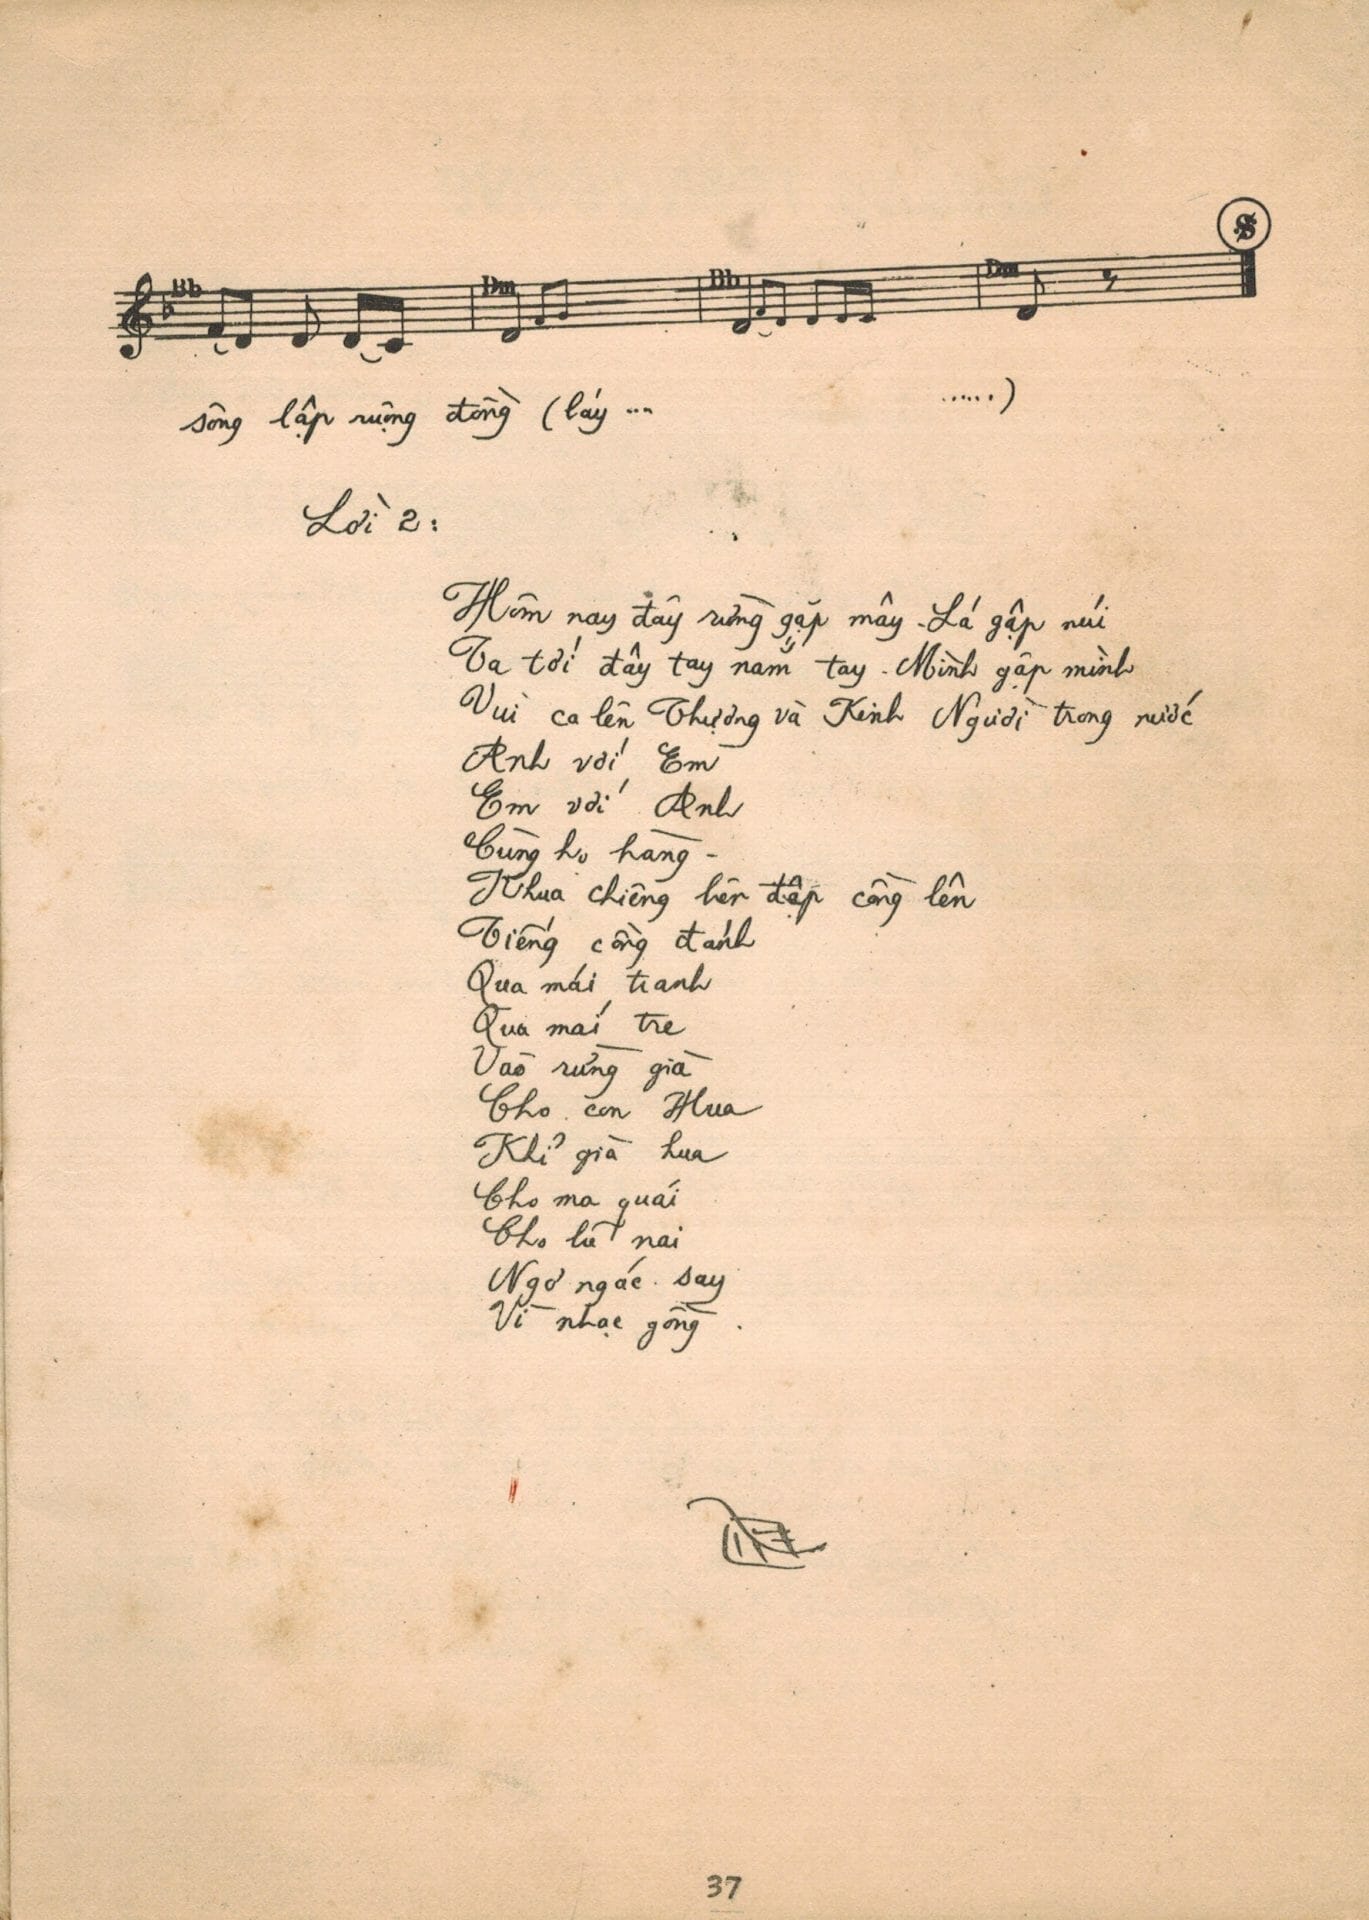 Bb Dm Bb Dm
sông lập ruộng đồng (láy ... ......)
Lời 2:
Hôm nay đây rừng gặp mây - Lá gập núi
Ta tới đây tay nắm tay - Mình gặp mình
Vui ca lên Thượng và Kinh Người trong nước
Anh với Em
Em với Anh
Cùng họ hàng -
Khua chiêng lên đập cồng lên
Tiếng cồng đánh
Qua mái tranh
Qua mái tre
Vào rừng già
Cho con Hua
Khỉ già hua
Cho ma quái
Cho lũ nai
Ngơ ngác say
Vì nhạc gồng.
37